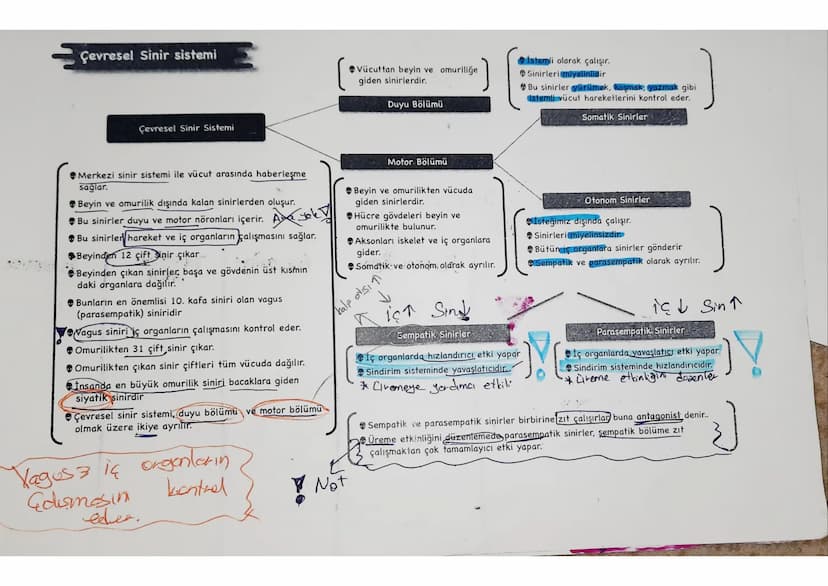 Çevresel Sinir sistemi
Vücuttan beyin ve omuriliğe
giden sinirlerdir.
Duyu Bölümü
İstemli olarak çalışır.
Sinirleri miyelinlidir
Bu sinirler yürümek, koşmak, yazmak gibi
istemli vücut hareketlerini kontrol eder.
Somatik Sinirler
Çevresel Sinir Sistemi
Motor Bölümü
Merkezi sinir sistemi ile vücut arasında haberleşme
sağlar.
Beyin ve omurilik dışında kalan sinirlerden oluşur.
Bu sinirler duyu ve motor nöronları içerir.
Ara yok
Bu sinirler hareket ve iç organların çalışmasını sağlar.
Beyinden 12 çift sinir çıkar
Beyinden çıkan sinirler başa ve gövdenin üst kısmın
daki organlara dağılır.
Bunların en önemlisi 10. kafa siniri olan vagus
(parasempatik) siniridir
Vagus siniri iç organların çalışmasını kontrol eder.
Omurilikten 31 çift sinir çıkar.
Omurilikten çıkan sinir çiftleri tüm vücuda dağılır.
İnsanda en büyük omurilik siniri bacaklara giden
siyatik sinirdir
Çevresel sinir sistemi, duyu bölümü ve motor bölümü
olmak üzere ikiye ayrılır.
Beyin ve omurilikten vücuda
giden sinirlerdir.
Hücre gövdeleri beyin ve
omurilikte bulunur.
Aksonları iskelet ve iç organlara
gider.
Somatik ve otonom olarak ayrılır.
Otonom Sinirler
İsteğimiz dışında çalışır.
Sinirleri miyelinsizdir.
Bütün iç organlara sinirler gönderir
Sempatik ve parasempatik olarak ayrılır.
kalp atışı
İç↑ Sin↓
İç↓ Sin↑
Sempatik Sinirler
İç organlarda hızlandırıcı etki yapar
Sindirim sisteminde yavaşlatıcıdır.
* Üremeye yardımcı etkili
Parasempatik Sinirler
İç organlarda yavaşlatıcı etki yapar.
Sindirim sisteminde hızlandırıcıdır.
* Üreme etkinliğini düzenler
Sempatik ve parasempatik sinirler birbirine zıt çalışırlar buna antagonist denir.
Üreme etkinliğini düzenlemede parasempatik sinirler, sempatik bölüme zıt
çalışmaktan çok tamamlayıcı etki yapar.
! Not
Vagus iç organların
Çalışmasını kontrol
eder.